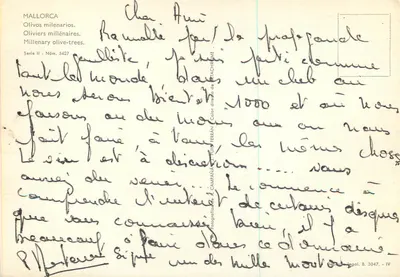 MALLORCA
Olivos milenarios.
Oliviers millénaires.
Millenary olive-trees.
Serie II - Núm. 3427
Cher Ami
Ramollie par la propagande
gaulliste, je suis parti comme
tout le monde dans un club où
nous serons bientôt 1000 et où nous
faisons ou du moins que on nous
fait faire, à tous, les mêmes choses
Le vin est à discrétion..... vous
auriez du venir. Je commence à
comprendre l'intérêt de certains disques
que vous connaissez bien, il y a
beaucoup à faire dans ce domaine.
Signé un des mille moutons